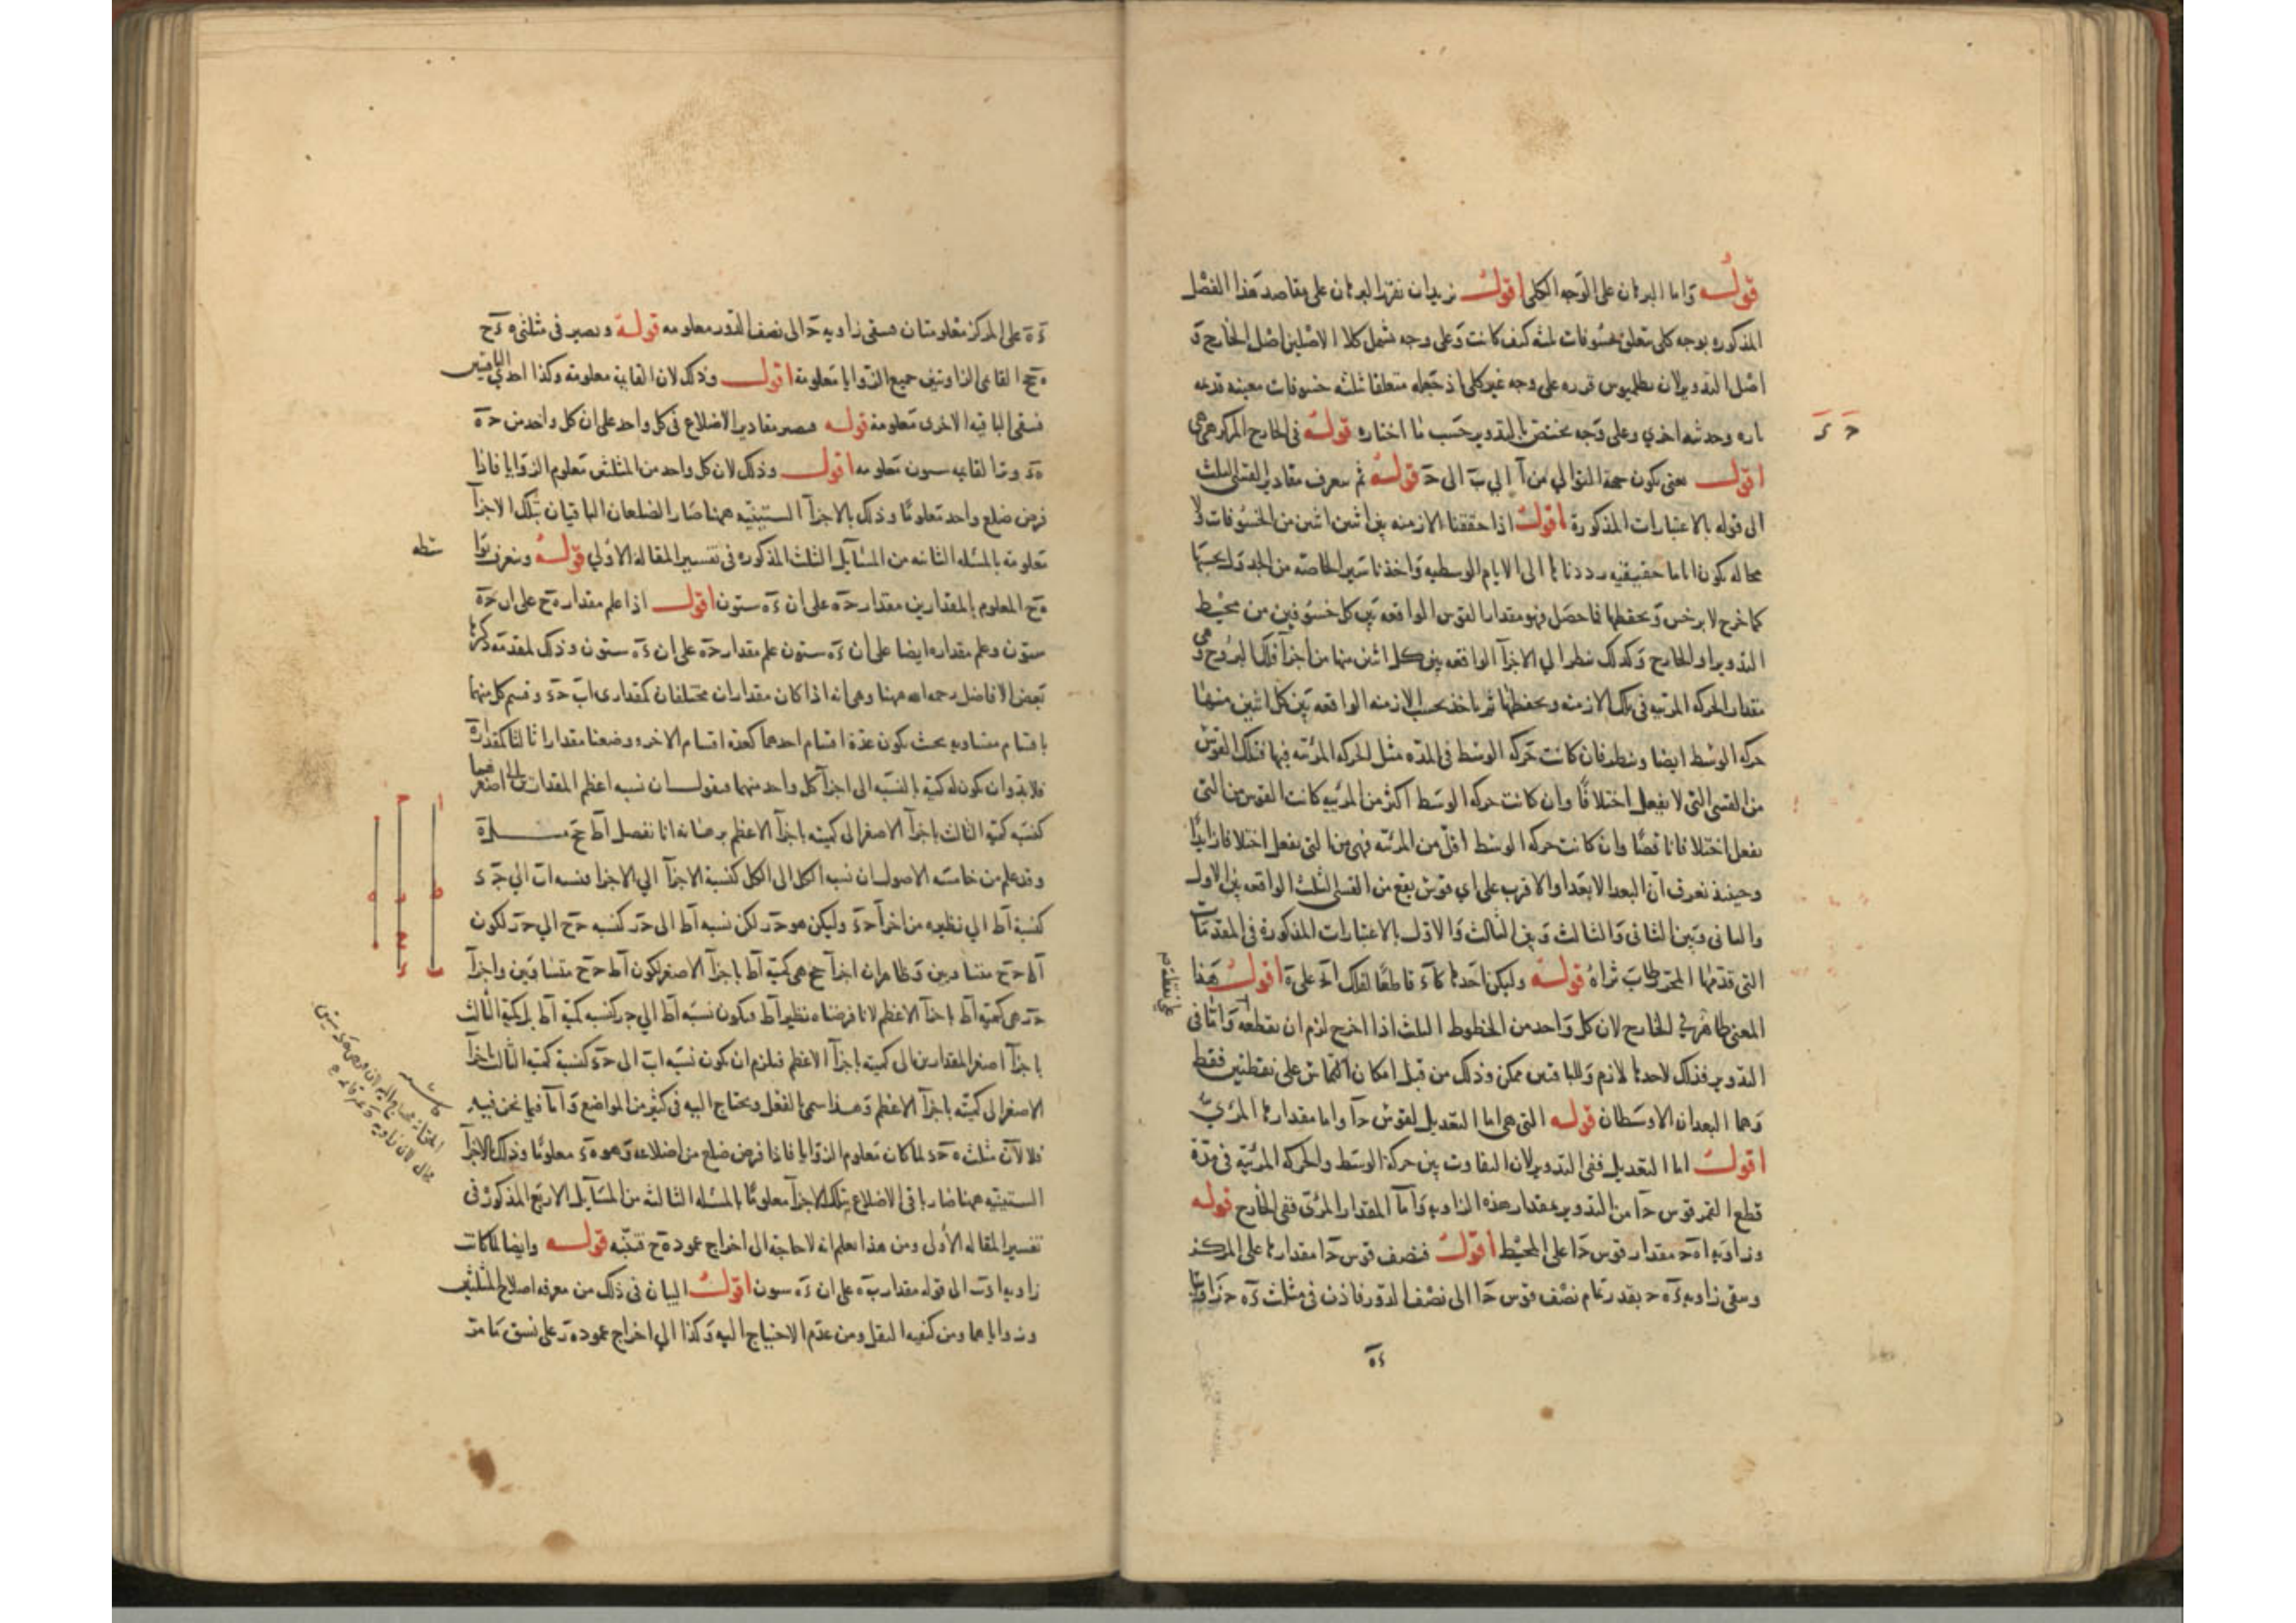 قوله واما البرهان على الوجه الكلى اقول نريد ان نقرر البرهان على مقاصد هذا الفصل
المذكوره بوجه كلى متعلق بخسوفات ثلثه كيف كانت وعلى وجه يشمل كلا الاصلين اصل الخارج و
اصل التدوير لان بطلميوس قرره على وجه غير كلى اذ جعله متعلقا ثلثه خسوفات معينه قديمه
تاره وحديثه اخرى وعلى وجه يختص بالتدوير حسب ما اختاره قوله فى الخارج المركز هى
اقول يعنى يكون جهة التوالى من آ الى ب الى ح قوله ثم يعرف مقادير القسى الثلث
الى قوله بالاعتبارات المذكورة اقول اذا حققنا الازمنه بين اثنين اثنين من الخسوفات لا
محاله يكون اياما حقيقيه رددناها الى الايام الوسطيه واخذنا مسير الخاصه من الجدول بحسبها
كما خرج لابرخس ونحفظها فما حصل فهو مقدار القوس الواقعه بين كل خسوفين من محيط
التدوير او الخارج وكذلك ننظر الى الاجزآ الواقعه بين كل اثنين منها من اجزآ فلك البروج وهى
مقدار الحركه المرئيه فى تلك الازمنه ونحفظها ثم ناخذ بحسب الازمنه الواقعه بين كل اثنين منها
حركه الوسط ايضا وننظر فان كانت حركه الوسط فى المده مثل الحركه المرئيه فيها فتلك القوس
من القسى التى لا يفعل اختلافًا وان كانت حركه الوسط اكثر من المرئيه كانت القوس من التى
يفعل اختلافا ناقصًا وان كانت حركه الوسط اقل من المرئيه فهى من التى يفعل اختلافا زايدًا
وحينئذ نعرف ان البعد الابعد او الاقرب على اى قوس يقع من القسى الثلث الواقعه بين الاول
والثانى وبين الثانى والثالث وبين الثالث والاول بالاعتبارات المذكورة فى المقدمات
التى قدمها المحرر طاب ثراه قوله وليكن احدها كآء قاطعًا لفلك اح على ه اقول هذا
المعنى ظاهر فى الخارج لان كل واحد من الخطوط الثلث اذا اخرج لزم ان يقطعه واما فى
التدوير فذلك لاحدها لازم وللباقيين ممكن وذلك من قبل امكان التماس على نقطتين فقط
وهما البعدان الاوسطان قوله التى هى اما التعديل لقوس حآ واما مقدارها المرئى
اقول اما التعديل ففى التدوير لان التفاوت بين حركة الوسط والحركه المرئيه فى مدة
قطع القمر قوس حآ من التدوير بمقدار هذه الزاويه واما المقدار المرئى ففى الخارج قوله
وزاويه اه ح مقدار قوس حآ على المحيط اقول فنصف قوس حآ مقدارها على المركز
وسقى زاويه ءه ح بقدر تمام نصف قوس حآ الى نصف الدور فاذن فى مثلث ءه ح زاويتا
ءه
ءه على المركز معلومتان فسقى زاويه ح الى نصف الدور معلومه قوله ويصير فى مثلثى ه ءح
ه حح القائمى الزاويتين جميع الزوايا معلومة اقول وذلك لان القايمة معلومه وكذا احدى الباقيتين
فسقى الباقيه الاخرى معلومة قوله فيصير مقادير الاضلاع فى كل واحد على ان كل واحد من حه
هء وترا لقايمه ستون معلومه اقول وذلك لان كل واحد من المثلثين معلوم الزوايا فاذا
فرض ضلع واحد معلومًا وذلك بالاجزآ الستينيه ههنا صار الضلعان الباقيان بتلك الاجزآ
معلومة بالمسئله الثانيه من المسآيل الثلث المذكوره فى تفسير المقالة الاولى قوله ونعرف بتوا
شطه
هح المعلوم بالمقدارين مقدار حه على ان ءه ستون اقول اذا علم مقدار هح على ان حه
ستون وعلم مقداره ايضا على ان ءه ستون علم مقدار حه على ان ءه ستون وذلك لمقدمه ذكرها
بعض الافاضل رحمه الله ههنا وهى انه اذا كان مقداران مختلفان كمقدارى اب حء وقسم كل منهما
باقسام متساويه بحيث يكون عدة اقسام احدهما كعدة اقسام الاخر ووضعنا مقدارا ثالثا كمقدار ه
فلابد وان يكون له كمية بالنسبه الى اجزآ كل واحد منهما فنقول ان نسبه اعظم المقدارين الى اصغرهما
كنسبه كمية الثالث باجزآ الاصغر الى كميته باجزآ الاعظم برهانه انا نفصل اط حح مثل ه
وقد علم من خامسه الاصول ان نسبه الكل الى الكل كنسبة الاجزآ الى الاجزا فنسبه اب الى حء
كنسبة اط الى نظيره من اجزآ حء وليكن هو حر لكن نسبه اط الى حر كنسبه حح الى حر لكون
اط حح متساويين وظاهر ان اجزآ حح هى كمية اط باجزآ الاصغر لكون اط حح متساويين واجزآ
حر هى كمية اط باجزآ الاعظم لانا فرضناه نظير اط فيكون نسبة اط الى حر كنسبه كمية اط بل كمية الثالث
باجزآ اصغر المقدارين الى كميته باجزآ الاعظم فيلزم ان يكون نسبه اب الى حء كنسبة كمية الثالث باجزآ
الاصغر الى كميته باجزآ الاعظم وهذا سمى بالنقل ويحتاج اليه فى كثير من المواضع واما فيما نحن فيه
فلا لان مثلث ه حء لما كان معلوم الزوايا فاذا فرض ضلع من اضلاعه وهو ه ء معلومًا وذلك بالاجزآ
الستينيه ههنا صار باقى الاضلاع بتلك الاجزآ معلومًا بالمسئله الثالثه من المسآيل الاربع المذكورة فى
تفسير المقاله الأولى ومن هذا يعلم انه لا حاجة الى اخراج عمود ه ح فتنبه قوله وايضا لما كانت
زاويه اءب الى قوله مقدار ب ه على ان ءه ستون اقول البيان فى ذلك من معرفه اضلاع المثلثين
وزواياهما ومن كيفيه النقل ومن عدم الاحتياج اليه وكذا الى اخراج عمود هر على نسق ما مر